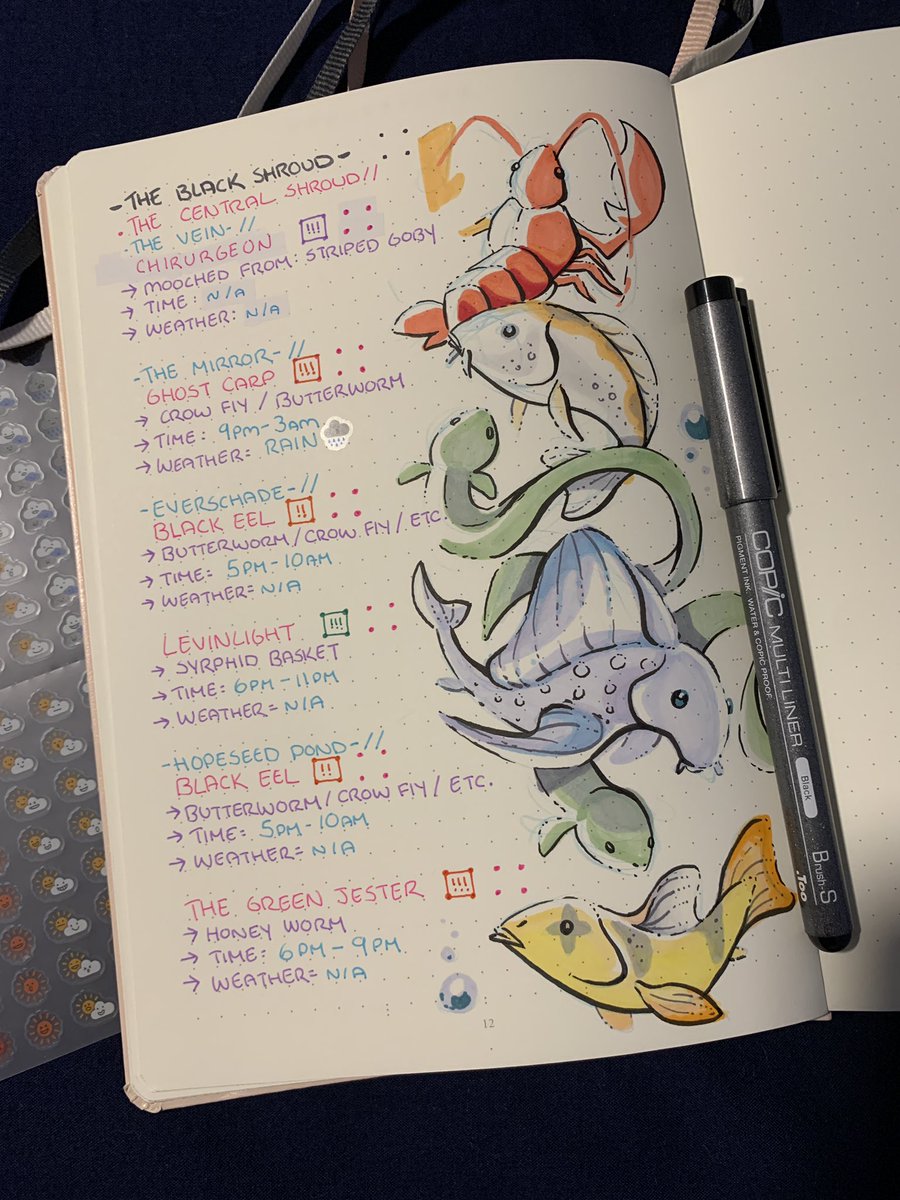 - THE BLACK SHROUD -
. THE CENTRAL SHROUD //
- THE VEIN - //
CHIRURGEON !!!
→ MOOCHED FROM: STRIPED GOBY
→ TIME: N/A
→ WEATHER: N/A
- THE MIRROR - //
GHOST CARP !!!
→ CROW FLY / BUTTERWORM
→ TIME: 9PM - 3AM
→ WEATHER= RAIN
- EVERSCHADE - //
BLACK EEL !!
→ BUTTERWORM / CROW FLY / ETC.
→ TIME= 5PM - 10AM
→ WEATHER= N/A
LEVINLIGHT !!!
→ SYRPHID BASKET
→ TIME: 6PM - 11PM
→ WEATHER= N/A
- HOPESEED POND - //
BLACK EEL !!
→ BUTTERWORM / CROW FLY / ETC.
→ TIME: 5PM - 10AM
→ WEATHER= N/A
THE GREEN JESTER !!!
→ HONEY WORM
→ TIME: 6PM - 9PM
→ WEATHER= N/A
12
COPIC MULTI LINER
PIGMENT INK. WATER & COPIC PROOF
Black
Brush-S
.Too